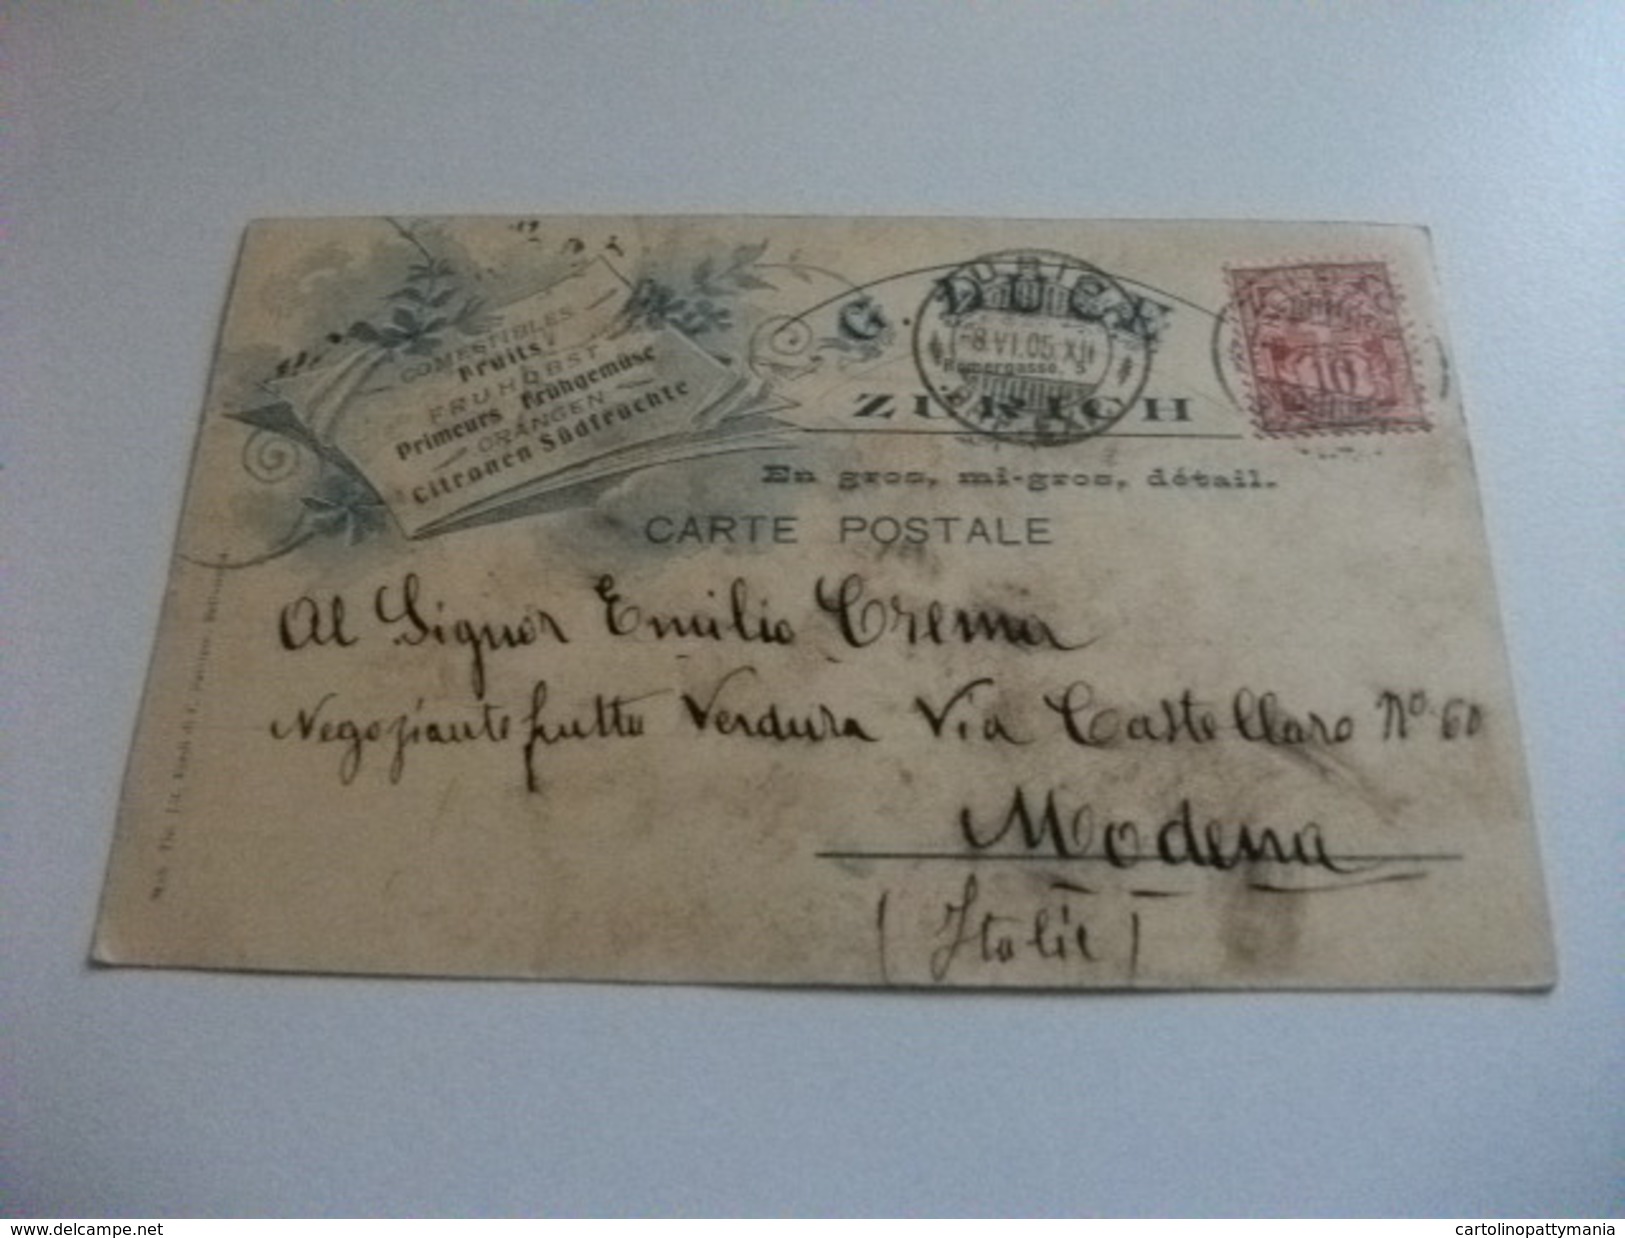 COMESTIBLES
Fruits
FRUHOBST
Primeurs Frühgemüse
ORANGEN
Citronen Südfrüchte
G. DUCK
ZÜRICH
En gros, mi-gros, détail.
CARTE POSTALE
-8.VI.05.XII
10
Al Signor Emilio Crema
Negoziante frutta Verdura Via Castellaro No. 60
Modena
(Italie)
www.delcampe.net
cartolinopattymania